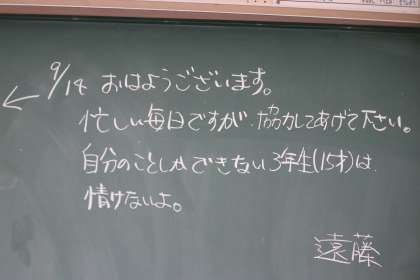 9/18 おはようございます。
忙しい毎日ですが、協力してあげて下さい。
自分のことしかできない3年生(15才)は、
情けないよ。
遠藤